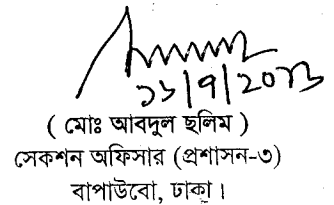 ১১/৭/২০১৩
( মোঃ আবদুল ছলিম )
সেকশন অফিসার (প্রশাসন-৩)
বাপাউবো, ঢাকা।